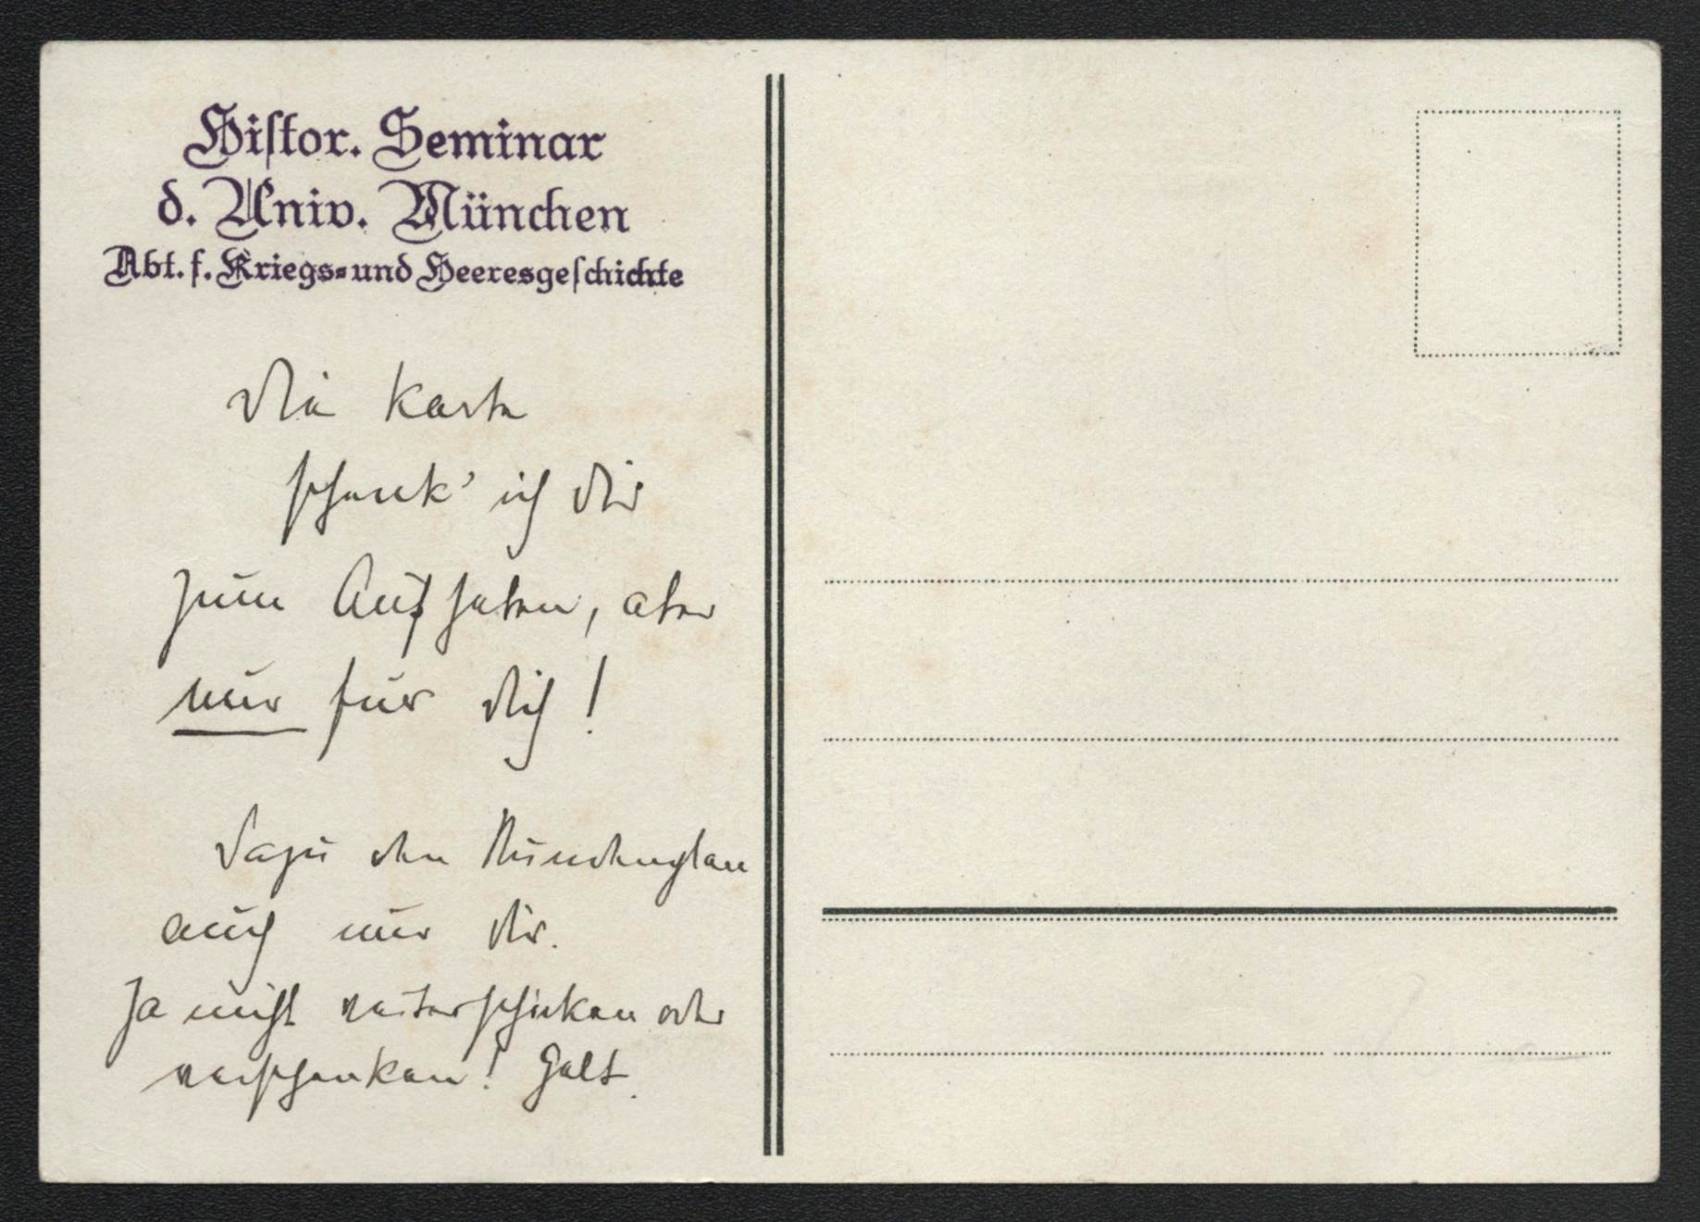 Histor. Seminar
d. Univ. München
Abt. f. Kriegs- und Heeresgeschichte
Die Karte
schenk' ich Dir
zum Aufheben, aber
nur für Dich!
Dazu den Stundenplan
auch nur Dir.
Ja nicht weiterschicken oder
verschenken! Gelt.